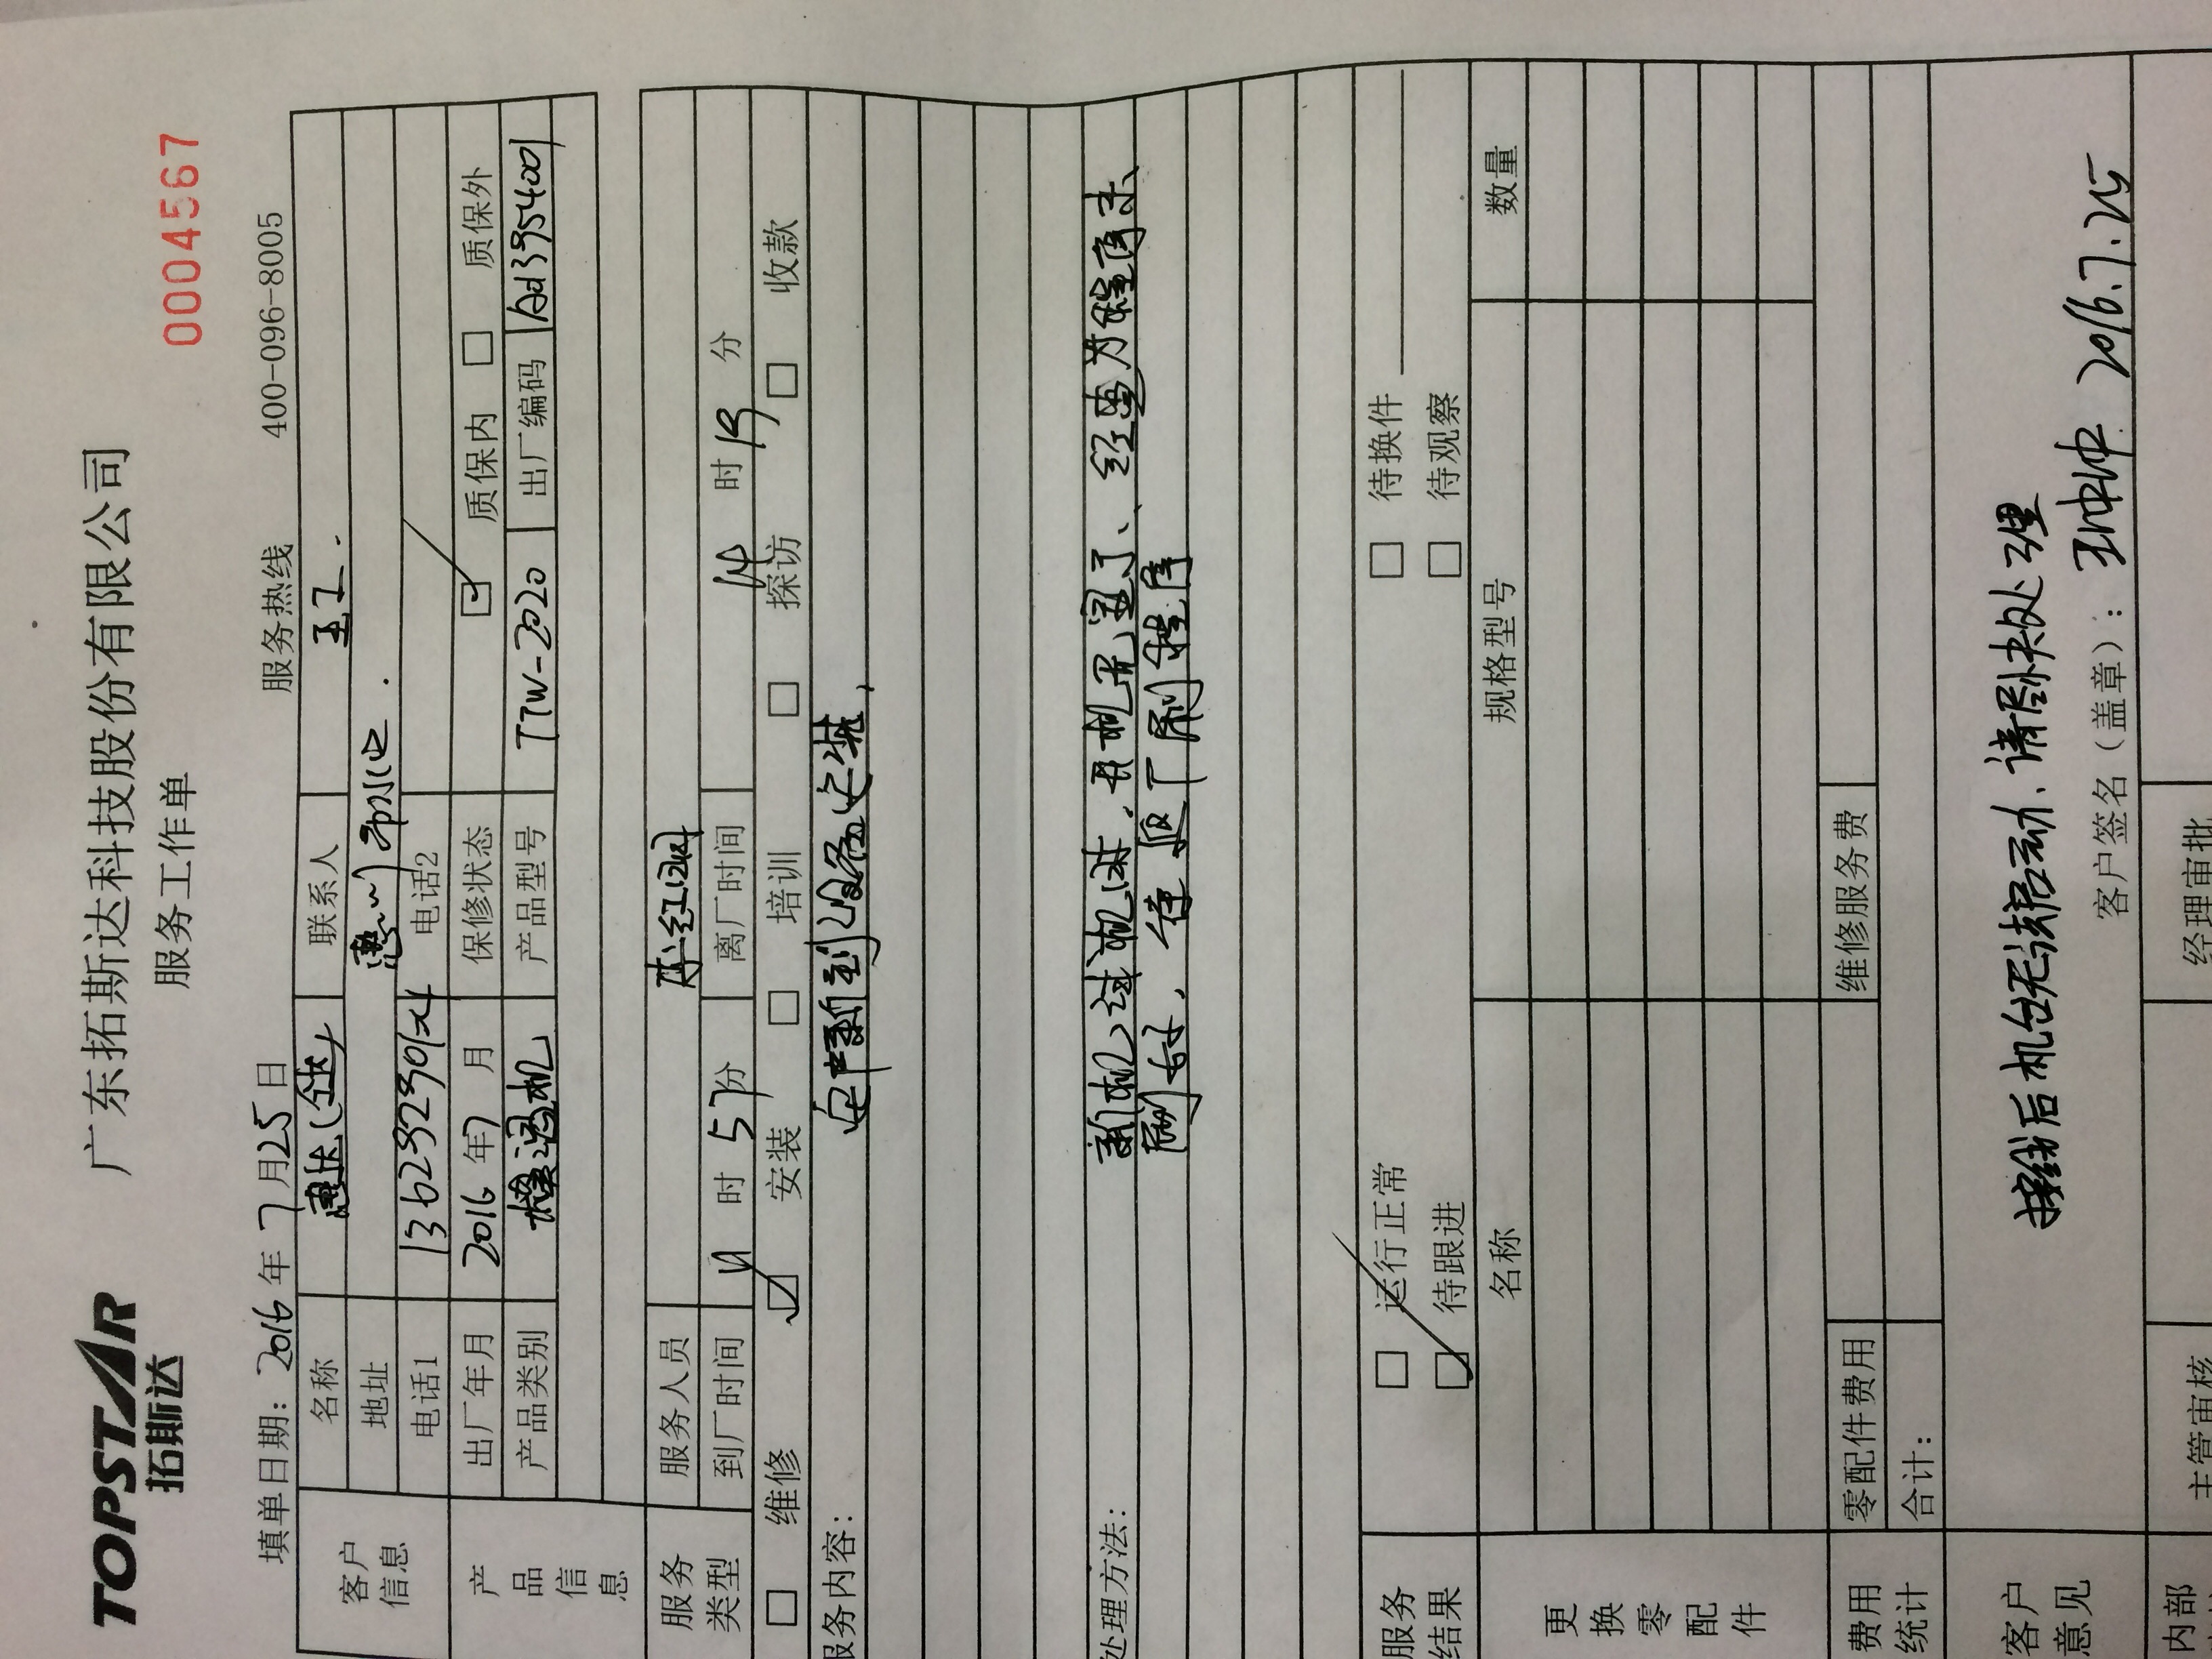 TOPSTAR
拓斯达
广东拓斯达科技股份有限公司
服务工作单
0004567
填单日期：2016年7月25日
服务热线 400-096-8005
客户信息
名称 惠达
联系人 王工.
地址 惠州
电话1
电话2
产品信息
出厂年月 2016年7月
保修状态 质保内 质保外
产品类别 模温机
产品型号 TTW-2020
出厂编码
服务人员 红刚
到厂时间 时 57分
离厂时间 14时19分
服务类型
维修 安装 培训 探访 收款
服务内容：
安排新到设备安装,
处理方法：
新机试机时,开机无显示、经查为程序未
刷好,待返厂刷程序
服务结果
运行正常 待换件
待跟进 待观察
更换零配件
名称 规格型号 数量
费用统计
零配件费用 维修服务费
合计：
客户意见
接线后机台无法启动、请尽快处理
客户签名（盖章）： 2016.7.25
内部
主管审核 经理审批